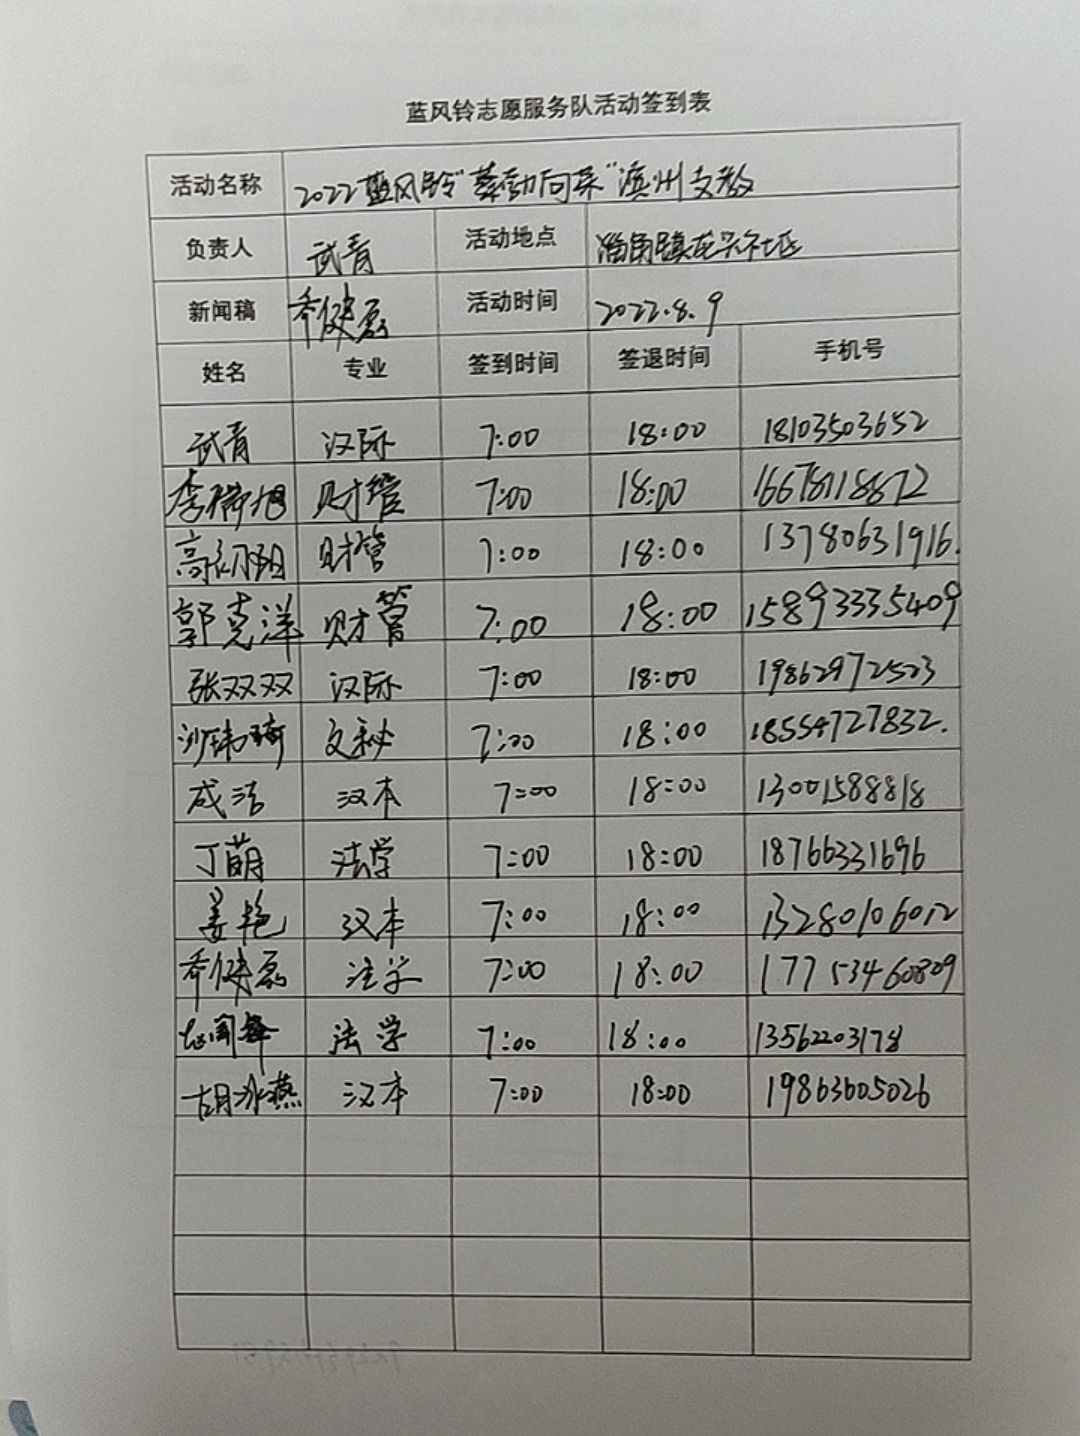 蓝风铃志愿服务队活动签到表
活动名称 2022蓝风铃"葵动向荣"滨州支教
负责人 武青 活动地点 淄角镇龙兴社区
新闻稿 乔健磊 活动时间 2022.8.9
姓名 专业 签到时间 签退时间 手机号
武青 汉际 7:00 18:00 18103503652
李 旭 财管 7:00 18:00 16678118672
高 阳 财管 7:00 18:00 13780631916.
郭克洋 财管 7:00 18:00 15893335409
张双双 汉际 7:00 18:00 19862972523
沙玮琦 文秘 7:00 18:00 18554727832.
成洁 汉本 7:00 18:00 13001588818
丁萌 法学 7:00 18:00 18766331696
姜艳 汉本 7:00 18:00 13280106012
乔健磊 法学 7:00 18:00 17753460809
法学 7:00 18:00 13562203178
胡冰燕 汉本 7:00 18:00 19863605026